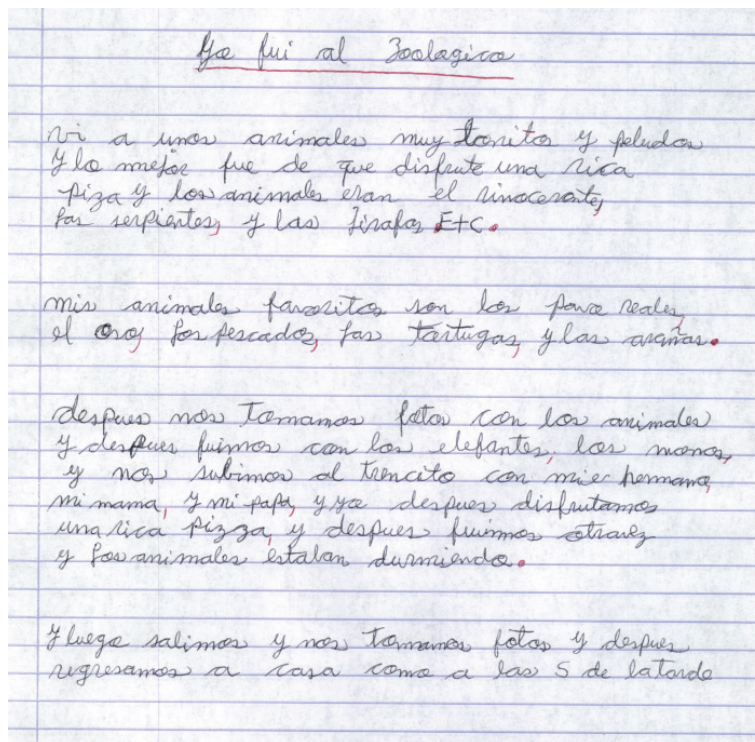 Yo fui al Zoologico
vi a unos animales muy bonitos y peludos
y lo mejor fue de que disfrute una rica
piza y los animales eran el rinoceronte,
las serpientes, y las Jirafas E+C.
mis animales favoritos son los pavo reales,
el oso, los pescados, las tortugas, y las arañas.
despues nos tomamos fotos con los animales
y despues fuimos con los elefantes, los monos,
y nos subimos al trencito con mi hermano,
mi mama, y mi papa, y ya despues disfrutamos
una rica pizza, y despues fuimos otravez
y los animales estaban durmiendo.
Y luego salimos y nos tomamos fotos y despues
regresamos a casa como a las 5 de latarde